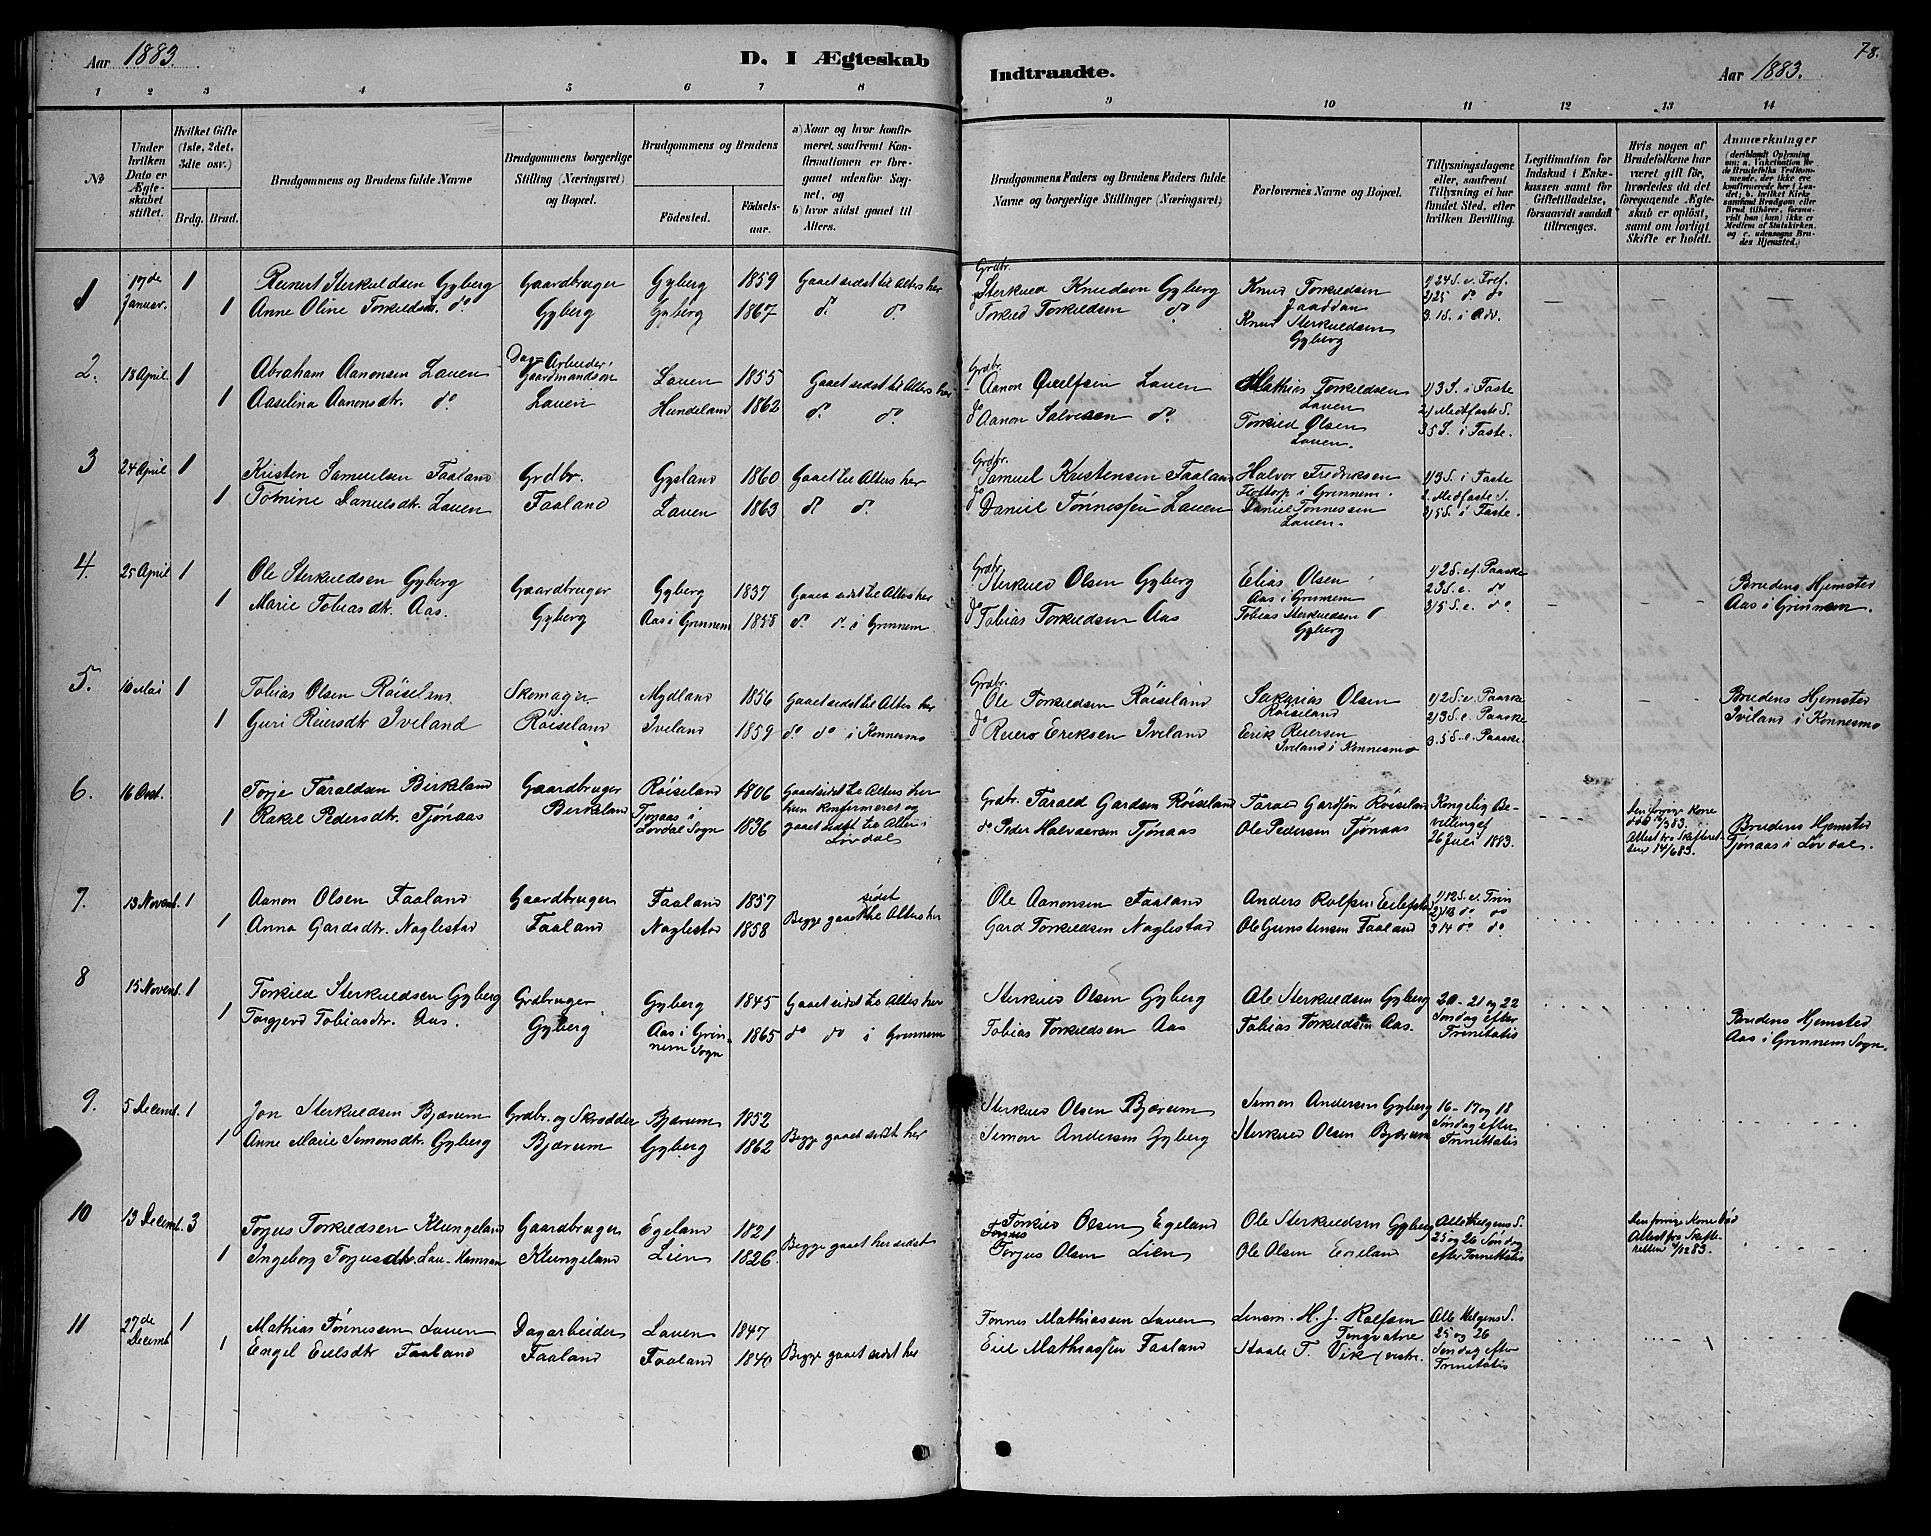 Aar 1883.
D. I Ægteskab
Indtraadte.
Aar 1883.
78.
1 2 3 4 5 6 7 8
9 10 11 12 13 14
No
Under hvilken Dato er Ægteskabet stiftet.
Hvilket Gifte (1ste, 2det, 3dte osv.)
Brdg. Brud.
Brudgommens og Brudens fulde Navne
Brudgommens borgerlige Stilling (Næringsvei) og Bopæl.
Brudgommens og Brudens
Fødested. Fødselsaar.
a) Naar og hvor konfirmeret, saafremt Konfirmationen er foregaaet udenfor Sognet, og
b) hvor sidst gaaet til Alters.
Brudgommens Faders og Brudens Faders fulde Navne og borgerlige Stillinger (Næringsvei)
Forlovernes Navne og Bopæl.
Tillysningsdagene eller, saafremt Tillysning ei har fundet Sted, efter hvilken Bevilling.
Legitimation for Indskud i Enkekassen samt for Giftetilladelse, forsaavidt saadant tiltrænges.
Hvis nogen af Brudefolkene har været gift før, hvorledes da det foregaaende Ægteskab er opløst, samt om lovligt Skifte er holdt.
Anmærkninger
1 17de Januar. 1 Reinert Sterkuldsen Gyberg Gaardbruger Gyberg 1859 Gaaet sidst til Alters her Grdbr. Sterkued Knudsen Gyberg Knud Torkildsen
1 Anne Oline Torkuldsdt. do Gyberg Gyberg 1867 do do Torkied Torkuldsen do Knud Sterkuldsen Gyberg
2. 18 April. 1 Abraham Aanonsen Lauen Dag-Arbeider, Gaardmandssøn Lauen 1855 Gaaet sidst til Alters her Grdbr. Aanon Lauen Mathias Torkeldsen Lauen 1) 3 S. i Faste
1 Aaselina Aanonsdtr. do Lauen Hundeland 1862 do do do Aanon Salvesen do Torkied Olsen Lauen 2) Midtfaste S. 3 5 S. i Faste.
3 24 April 1 Kristen Samuelsen Faaland Grdbr. Gysland 1860 Gaaet til Alters her Grdbr. Samuel Kristensen Faaland Halvor Fredriksen i Grinnem. 1) 3 S. i Faste
1 Tomine Danielsdtr. Lauen Faaland Lauen 1863 do do do Daniel Tønnessen Lauen Daniel Tønnessen Lauen. 2. Midfaste S. 3) 5 S. i Faste.
4. 25 April 1 Ole Sterkuldsen Gyberg Gaardbruger Gyberg 1837 Gaaet sidst til Alters her Grdbr. Sterkued Olsen Gyberg Elias Olsen Aas i Grinnem 1) 2 S. ef. Paaske 2 3 S. e. do — — Brudens Hjemsted
1 Marie Tobiasdtr. Aas. Gyberg Aas i Grinnem 1858 do do i Grinnem. do Tobias Torkuldsen Aas Tobias Sterkuldsen Gyberg 3) 5 S. e. do. Aas i Grinnem.
5. 10 Mai 1 Tobias Olsen Røiselan Skomager Mydland 1856 Gaaet sidst til Alters her Grdbr. Ole Torkildsen Røiseland Sakarias Olsen Røiseland 1) 2 S. e. Paaske — — Brudens Hjemsted
1 Guri Reiersdtr Iveland Røiseland Iveland 1859 do do i Konnesmo do Reiers Eriksen Iveland Erik Reiersen Iveland i Konnesmo 2) 3 S. e. Paaske 3. 5 S. e. Paaske. Iviland i Konnesmo
6. 16 Oct. Torje Taraldsen Birkeland Gaardbruger Røiseland 1806 Gaaet sidst til Alters her Grdbr. Tarald Gardsen Røiseland Tarald Gardsen Røiseland Kongelig Bevilling af den forrige Kone død
1 Rakel Pedersdtr. Tjønaas Birkeland Tjønaas i Løvdal Sogn 1836 hun konfirmeret og gaaet sidst til Alters i Løvdal do Peder Halvorsen Tjønaas Ole Pedersen Tjønaas 26 Juli 1883. Attest fra Skifteretten 14/6 83. Brudens Hjemsted Tjønaas i Løvdal.
7. 13 Novemb. 1 Aanon Olsen Faaland Gaardbruger Faaland 1857 Begge gaaet sidst til Alters her Ole Aanonsen Faaland Anders Rolfsen 1) 12 S. e. Trin
1 Anna Gardsdtr. Naglestad Faaland Naglestad 1858 Gard Torkildsen Naglestad Ole Gunstensen Faaland 2) 13 do do 3 14 do do
8 15 Novemb. 1 Torkied Sterkuldsen Gyberg Grdbruger Gyberg 1845 Gaaet sidst til Alters her Sterkued Olsen Gyberg Ole Sterkuldsen Gyberg 20-21 og 22
1 Torgjerd Tobiasdtr. Aas. Gyberg Aas i Grinnem Sogn 1865 do do i Grinnem Tobias Torkuldsen Aas Tobias Torkuldsen Aas. Søndag efter Trinitatis Brudens Hjemsted Aas i Grinnem Sogn.
9. 5 Decemb. 1 Jon Sterkuldsen Bjærum Grdbr. og Skrædder Bjærum 1852 Begge gaaet sidst her Sterkued Olsen Bjærum Simon Andersen Gyberg 16-17 og 18
1 Anne Marie Simonsdtr. Gyberg Bjærum Gyberg 1862 Simon Andersen Gyberg Sterkued Olsen Bjærum Søndag efter Trinitatis
10 13 Decemb. 3 Torjus Torkuldsen Klungeland Gaardbruger Egeland 1821 Begge gaaet her sidst Torkied Olsen Egeland Ole Sterkuldsen Gyberg Alle Helgens S. den forrige Kone død
1 Ingeborg Torjusdtr. Klungeland Lien 1826 Torjus Torjus Olsen Lien Ole Olsen Egeland 25 og 26 Søndag efter Trinitatis Attest fra Skifteretten
11 27de Decemb 1 Mathias Tønnessen Lauen Dagarbeider Lauen 1847 Begge gaaet sidst her Tønnes Mathiassen Lauen Lensm. H. J. Rolfsen Tingvatne Alle Helgens S. 25 og 26
1 Engel Eielsdtr Faaland Faaland Faaland 1840 Eiel Mathiassen Faaland Staale T. Vik Søndag efter Trinitatis